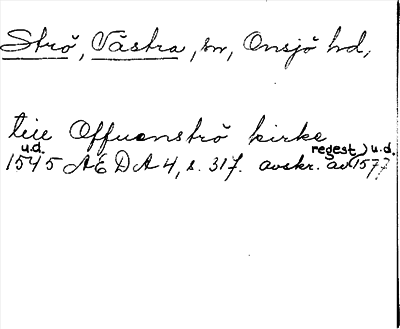 Strö, Västra, sn, Onsjö hd,
tiie Offuenströ kirke
u.d. regest) u.d.
1545 ÆDA 4, s. 317. avskr. av 1577